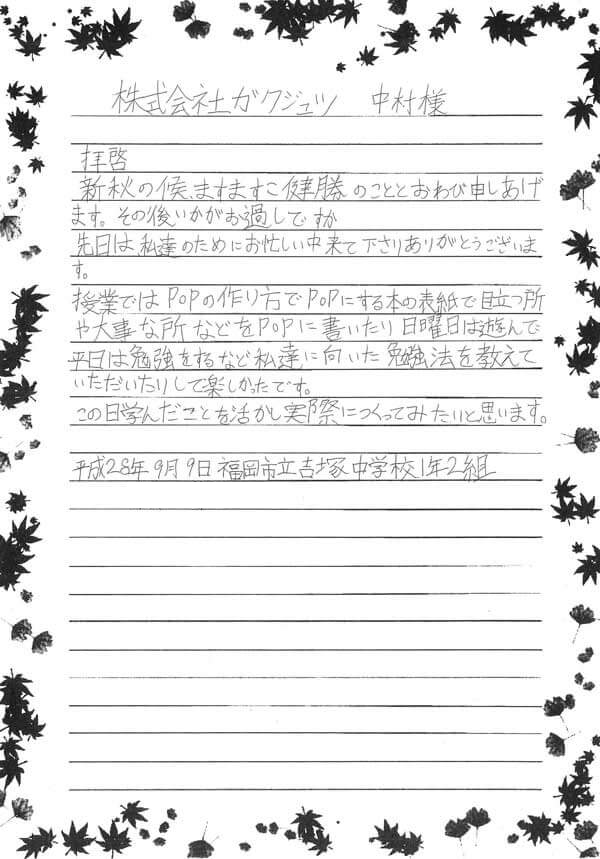 株式会社ガクジュツ 中村様
拝啓
新秋の候、ますますご健勝のこととおわび申しあげ
ます。その後いかがお過しですか
先日は、私達のためにお忙しい中来て下さりありがとうございま
す。
授業ではPOPの作り方でPOPにする本の表紙で目立つ所
や大事な所などをPOPに書いたり日曜日は遊んで
平日は勉強をするなど私達に向いた勉強法を教えて
いただいたりして楽しかったです。
この日学んだことを活かし実際につくってみたいと思います。
平成28年9月9日福岡市立吉塚中学校1年2組